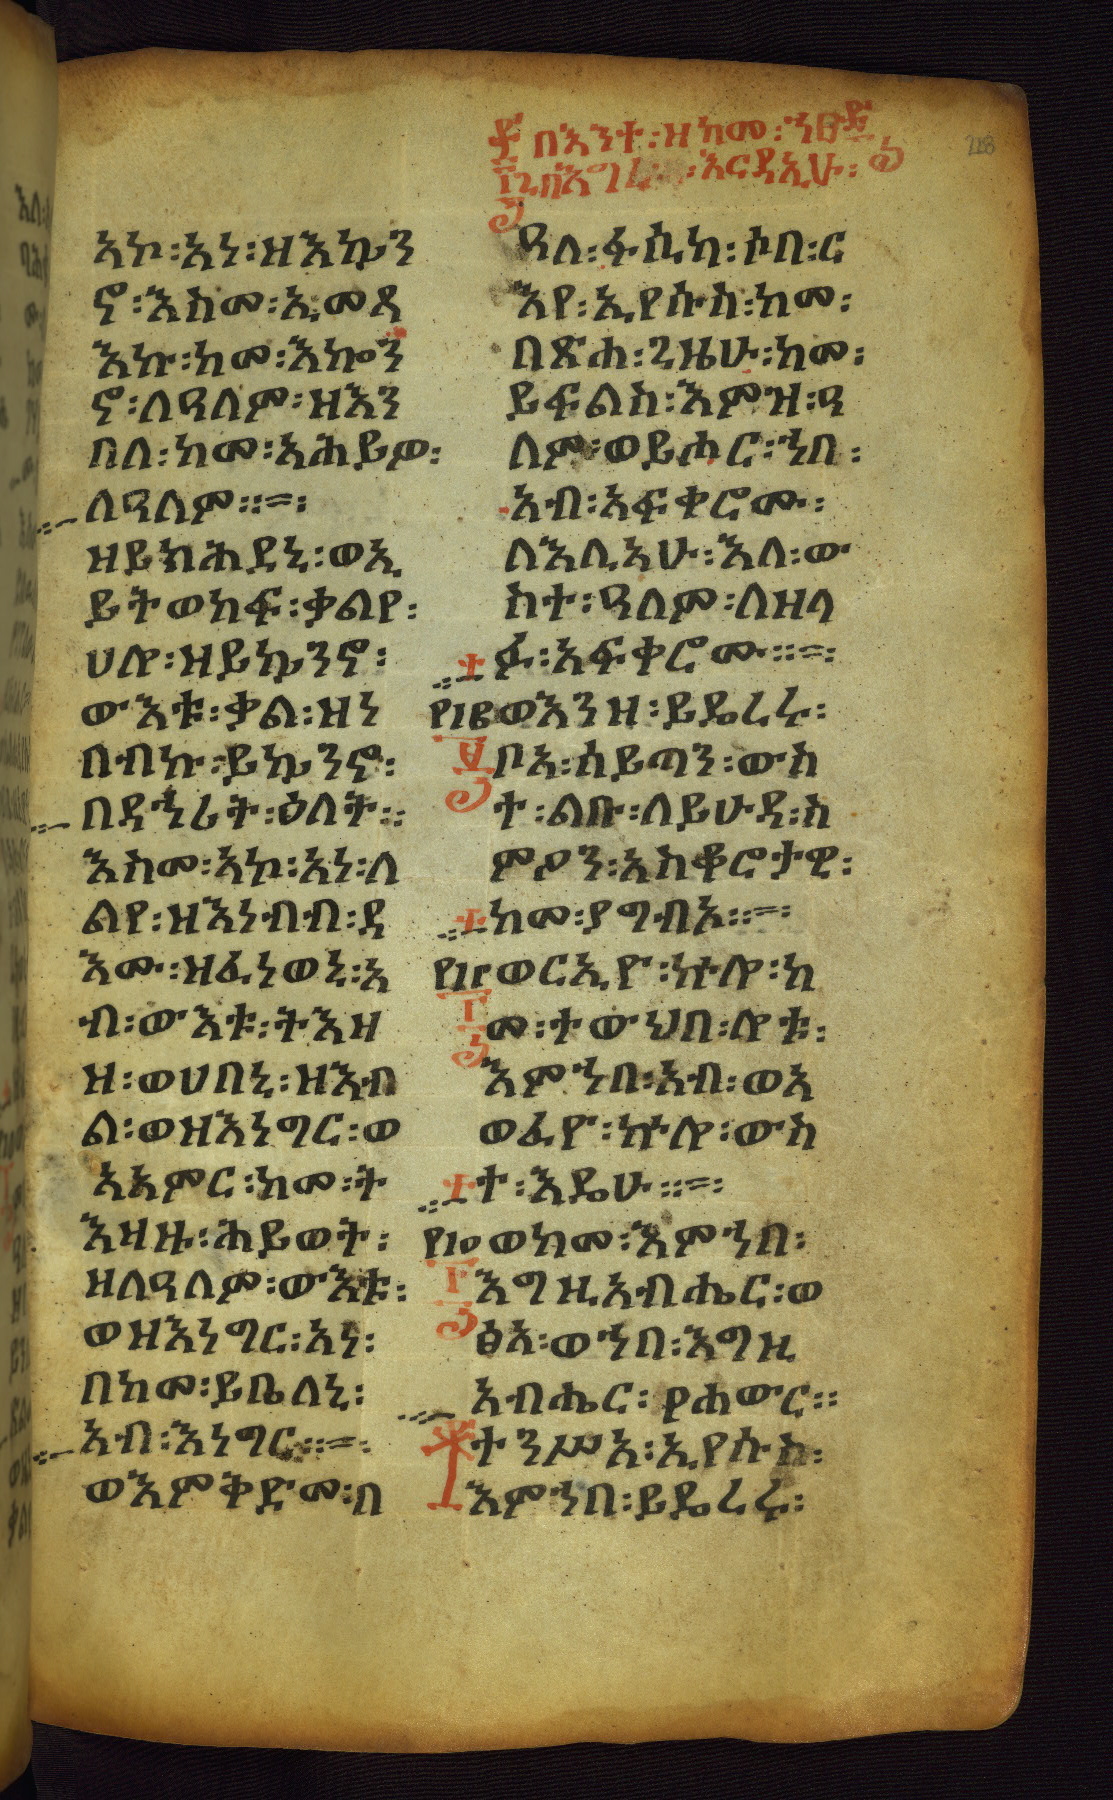 በእንተ፡ዘከመ፡ኀፀ
በ፡እግረ፡አርዳኢሁ፡
አኮ፡አነ፡ዘእኴን
ኖ፡እስመ፡ኢመጻ
እኩ፡ከመ፡እኰን
ኖ፡ለዓለም፡ዘእን
በለ፡ከመ፡አሕይዎ፡
ለዓለም።=፡
ዘይክሕደኒ፡ወኢ
ይትወከፍ፡ቃልየ፡
ሀሎ፡ዘይኴንኖ፡
ውእቱ፡ቃል፡ዘነ
በብኩ፡ይኴንኖ፡
በደኃሪት፡ዕለት።
እስመ፡አኮ፡እነ፡ለ
ልየ፡ዘእነብብ፡ዳ
እሙ፡ዘፈነወኒ፡አ
ብ፡ውእቱ፡ትእዛ
ዘ፡ወሀበኒ፡ዘእብ
ል፡ወዘእነግር፡ወ
አአምር፡ከመ፡ት
እዛዙ፡ሕይወት፡
ዘለዓለም፡ውእቱ፡
ወዘእነግር፡አነ፡
በከመ፡ይቤለኒ፡
አብ፡እነግር።=፡
ወእምቅድመ፡በ
ዓለ፡ፋሲካ፡ሶበ፡ር
እየ፡ኢየሱስ፡ከመ፡
በጽሐ፡ጊዜሁ፡ከመ፡
ይፍልስ፡እምዝ፡ዓ
ለም፡ወይሖር፡ኀበ፡
አብ፡አፍቀሮሙ፡
ለእሊአሁ፡እለ፡ው
ስተ፡ዓለም፡ለዘላ
ፉ፡አፍቀሮሙ።=፡
ወእንዘ፡ይዴረሩ፡
ቦአ፡ሰይጣን፡ውስ
ተ፡ልቡ፡ለይሁዳ፡ስ
ምዖን፡አስቆሮታዊ፡
ከመ፡ያግብኦ።=፡
ወርእዮ፡ኵሎ፡ከ
መ፡ተውህበ፡ሎቱ፡
እምኀበ፡አብ፡ወአ
ወፈዮ፡ኵሎ፡ውስ
ተ፡እዴሁ።=፡
ወከመ፡እምኀበ፡
እግዚአብሔር፡ወ
ፅአ፡ወኀበ፡እግዚ
አብሔር፡የሐውር።
ተንሥአ፡ኢየሱስ፡
እምኀበ፡ይዴረሩ፡